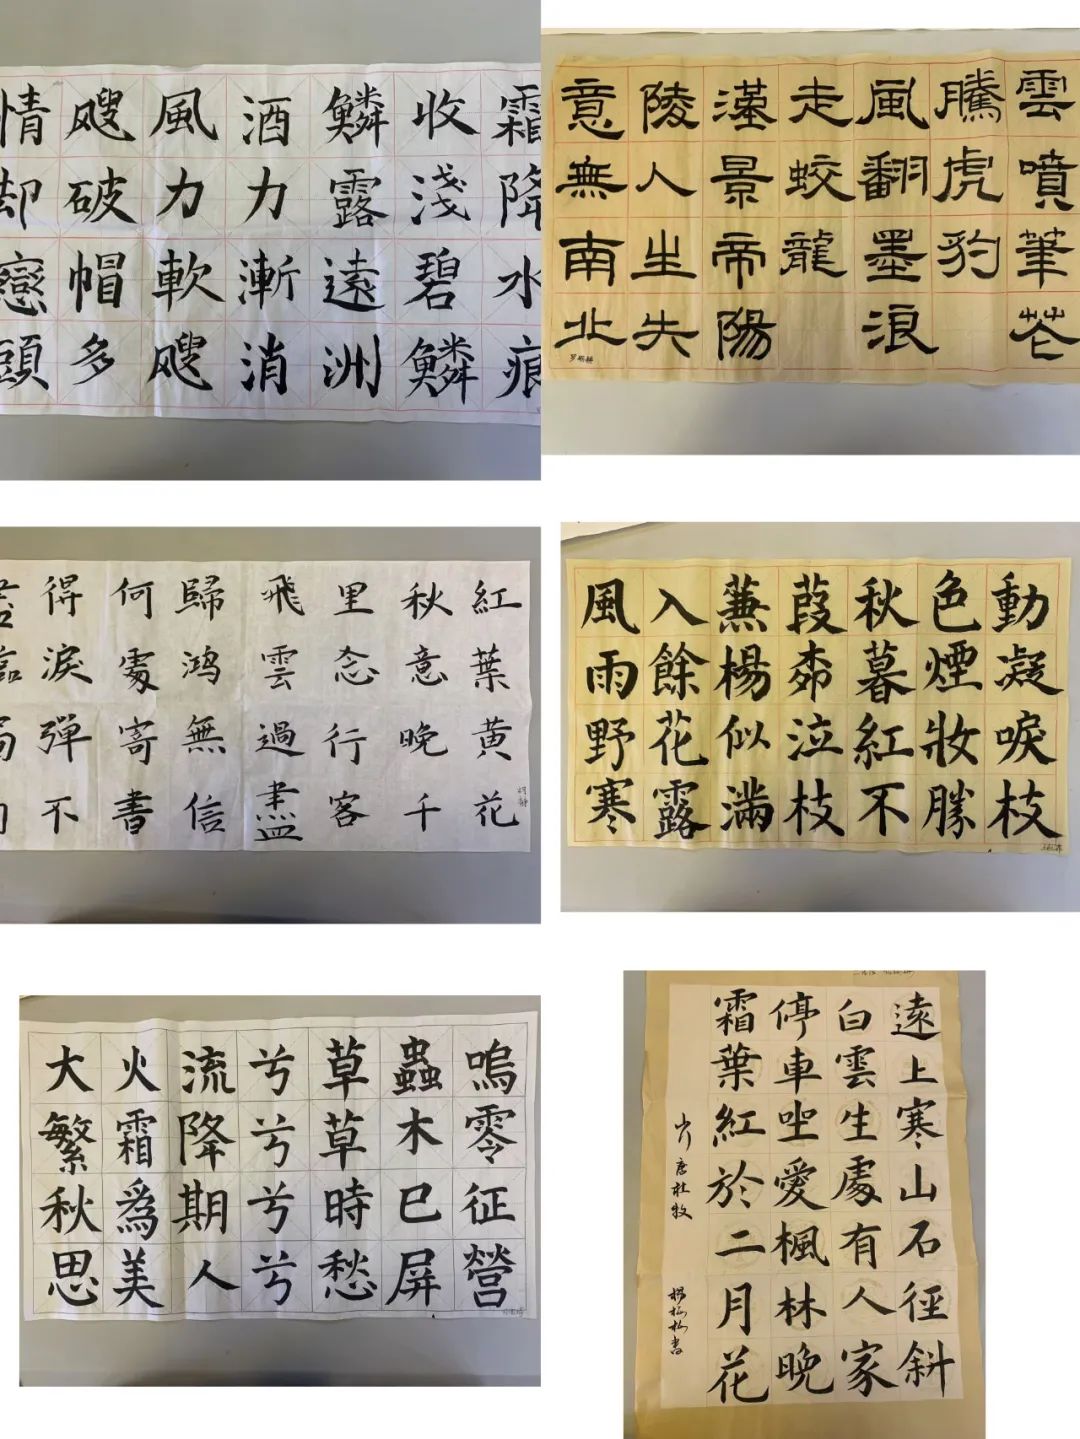 霜降水痕
收淺碧鱗
鱗露遠洲
酒力漸消
風力軟颼
颼破帽多
情却戀頭
雲噴筆花
騰虎豹
風翻墨浪
走蛟龍
漢景帝陽
陵人生失
意無南北
紅葉黃花
秋意晚千
里念行客
飛雲過盡
歸鴻無信
何處寄書
得淚彈不
動凝唳枝
色煙妝勝
秋暮紅不
葭桺泣枝
蒹楊似滿
入餘花露
風雨野寒
嗚零征營
蟲木巳屏
草草時愁
兮兮兮兮
流降期人
火霜爲美
大繁秋思
遠上寒山石徑斜
白雲生處有人家
停車坐愛楓林晚
霜葉紅於二月花
山行 唐杜牧